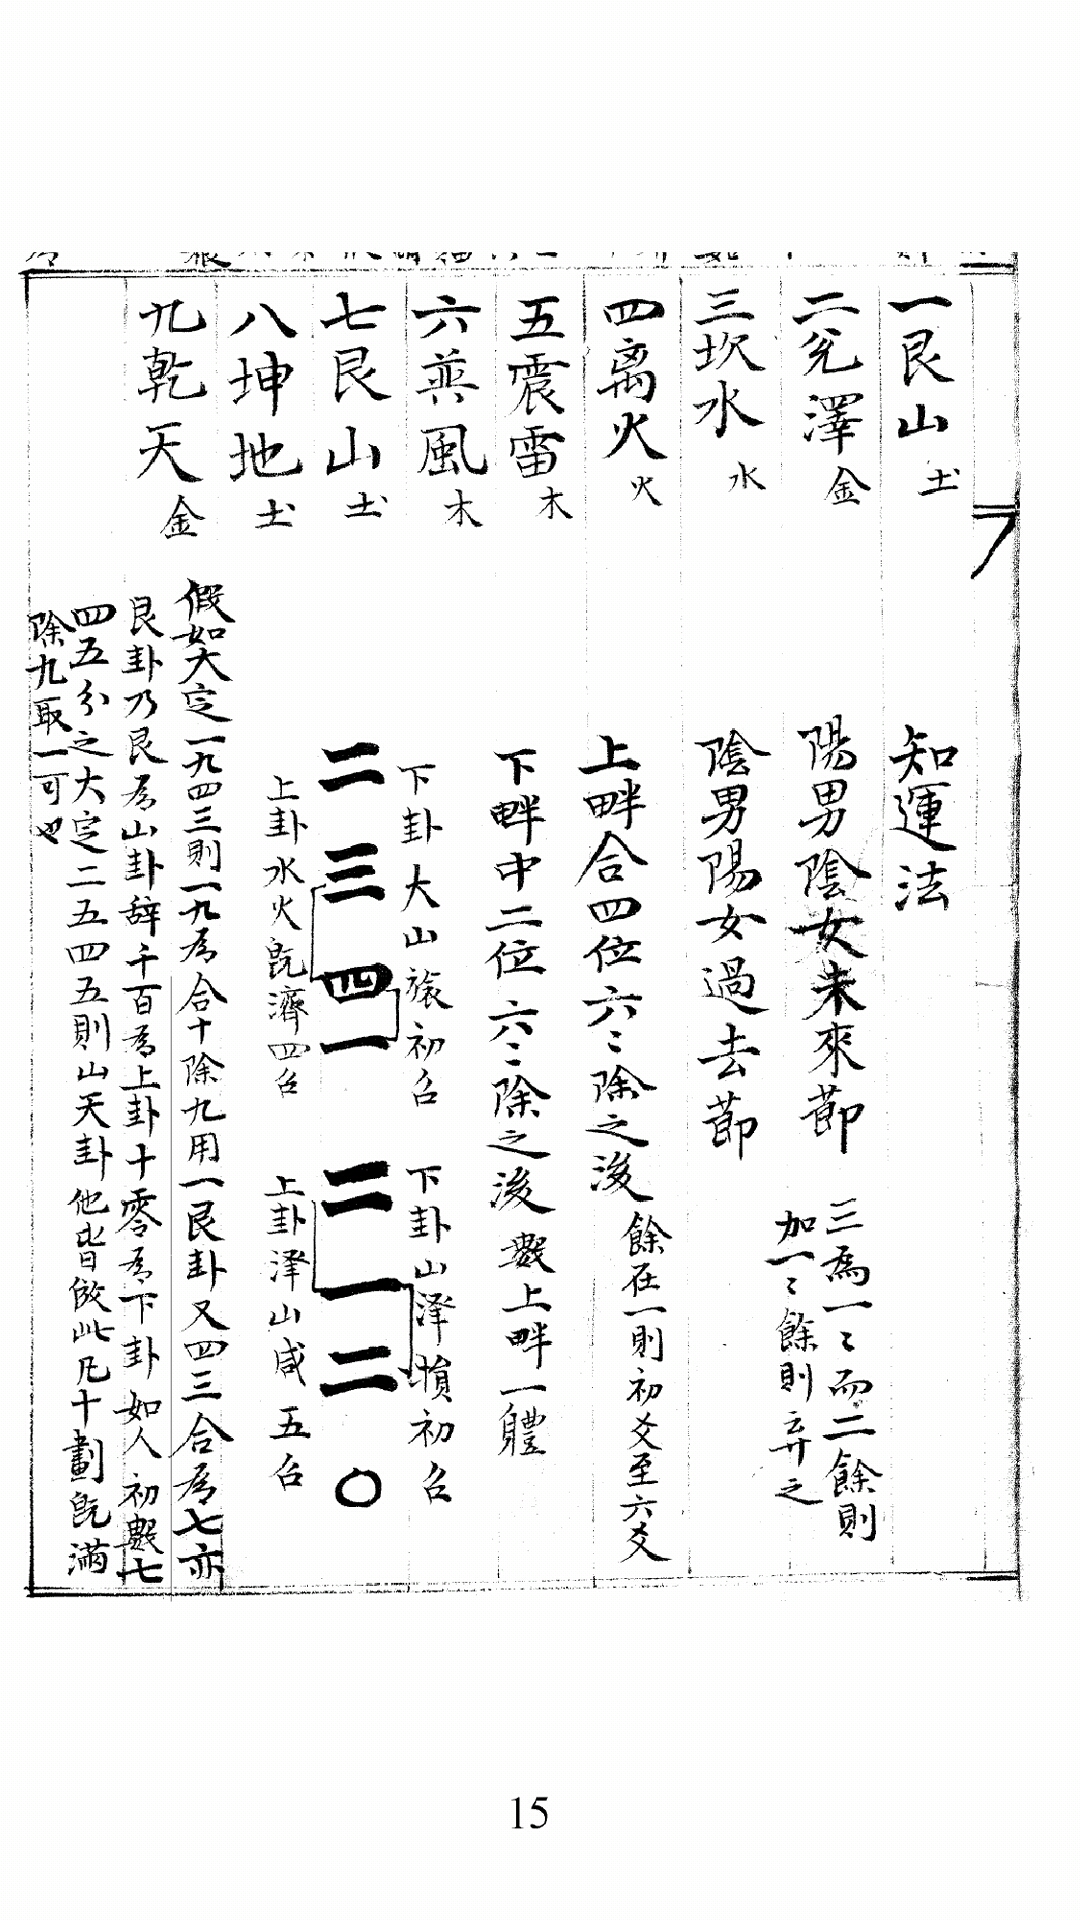 一艮山 土
二兊澤 金
三坎水 水
四离火 火
五震雷 木
六巽風 木
七艮山 土
八坤地 土
九乾天 金
知運法
陽男陰女未來節 三為一〻而二餘則
加一〻餘則弃之
陰男陽女過去節
上畔合四位六〻除之後 餘在一則初爻至六爻
下畔中二位六〻除之後 數上畔一軆
下卦大山旅初爻 下卦山泽損初爻
二三四一 二一二〇
上卦水火旣濟四爻 上卦泽山咸五爻
假如大定一九四三則一九為合十除九用一艮卦又四三合為七亦
艮卦乃艮為山卦辞千百為上卦十零為下卦如人初數七
四五分之大定二五四五則山天卦他皆倣此凡十劃旣滿
除九取一可也
15